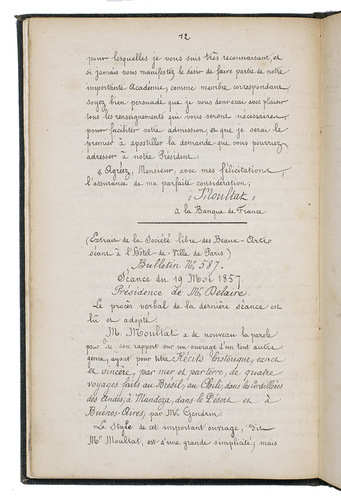 12
pour lesquelles je vous suis très reconnaissant, et
si jamais vous manifestez le desir de faire partie de notre
importante Académie, comme membre correspondant
soyez bien persuadé que je vous donnerai avec plaisir
tous les renseignements qui vous seront necessaires
pour faciliter votre admission, et que je serai le
premier à apostiller la demande que vous pourriez
adresser à notre Président.
« Agréez, Monsieur, avec mes félicitations
l'assurance de ma parfaite considération,
« Moultat »
à la Banque de France
(Extrait de la Société libre des Beaux-Arts
séant à l'Hôtel-de-Ville de Paris)
Bulletin No 587.
Séance du 19 Mai 1857.
Présidence de Mr Delaire
Le procès verbal de la dernière séance est
lu et adopté.
M. Moultat a de nouveau la parole
pour lire son rapport sur un ouvrage d'un tout autre
genre, ayant pour titre Récits historique, exact
et sincère, par mer et par terre, de quatre
voyages faits au Brésil, au Chili, dans les Cordillières
des Andes, à Mandoza, dans le Désert et à
Buénos-Aires, par Mr. Gendrin
Le Style de cet important ouvrage, dit
Mr Moultat, est d'une grande simplicité; mais